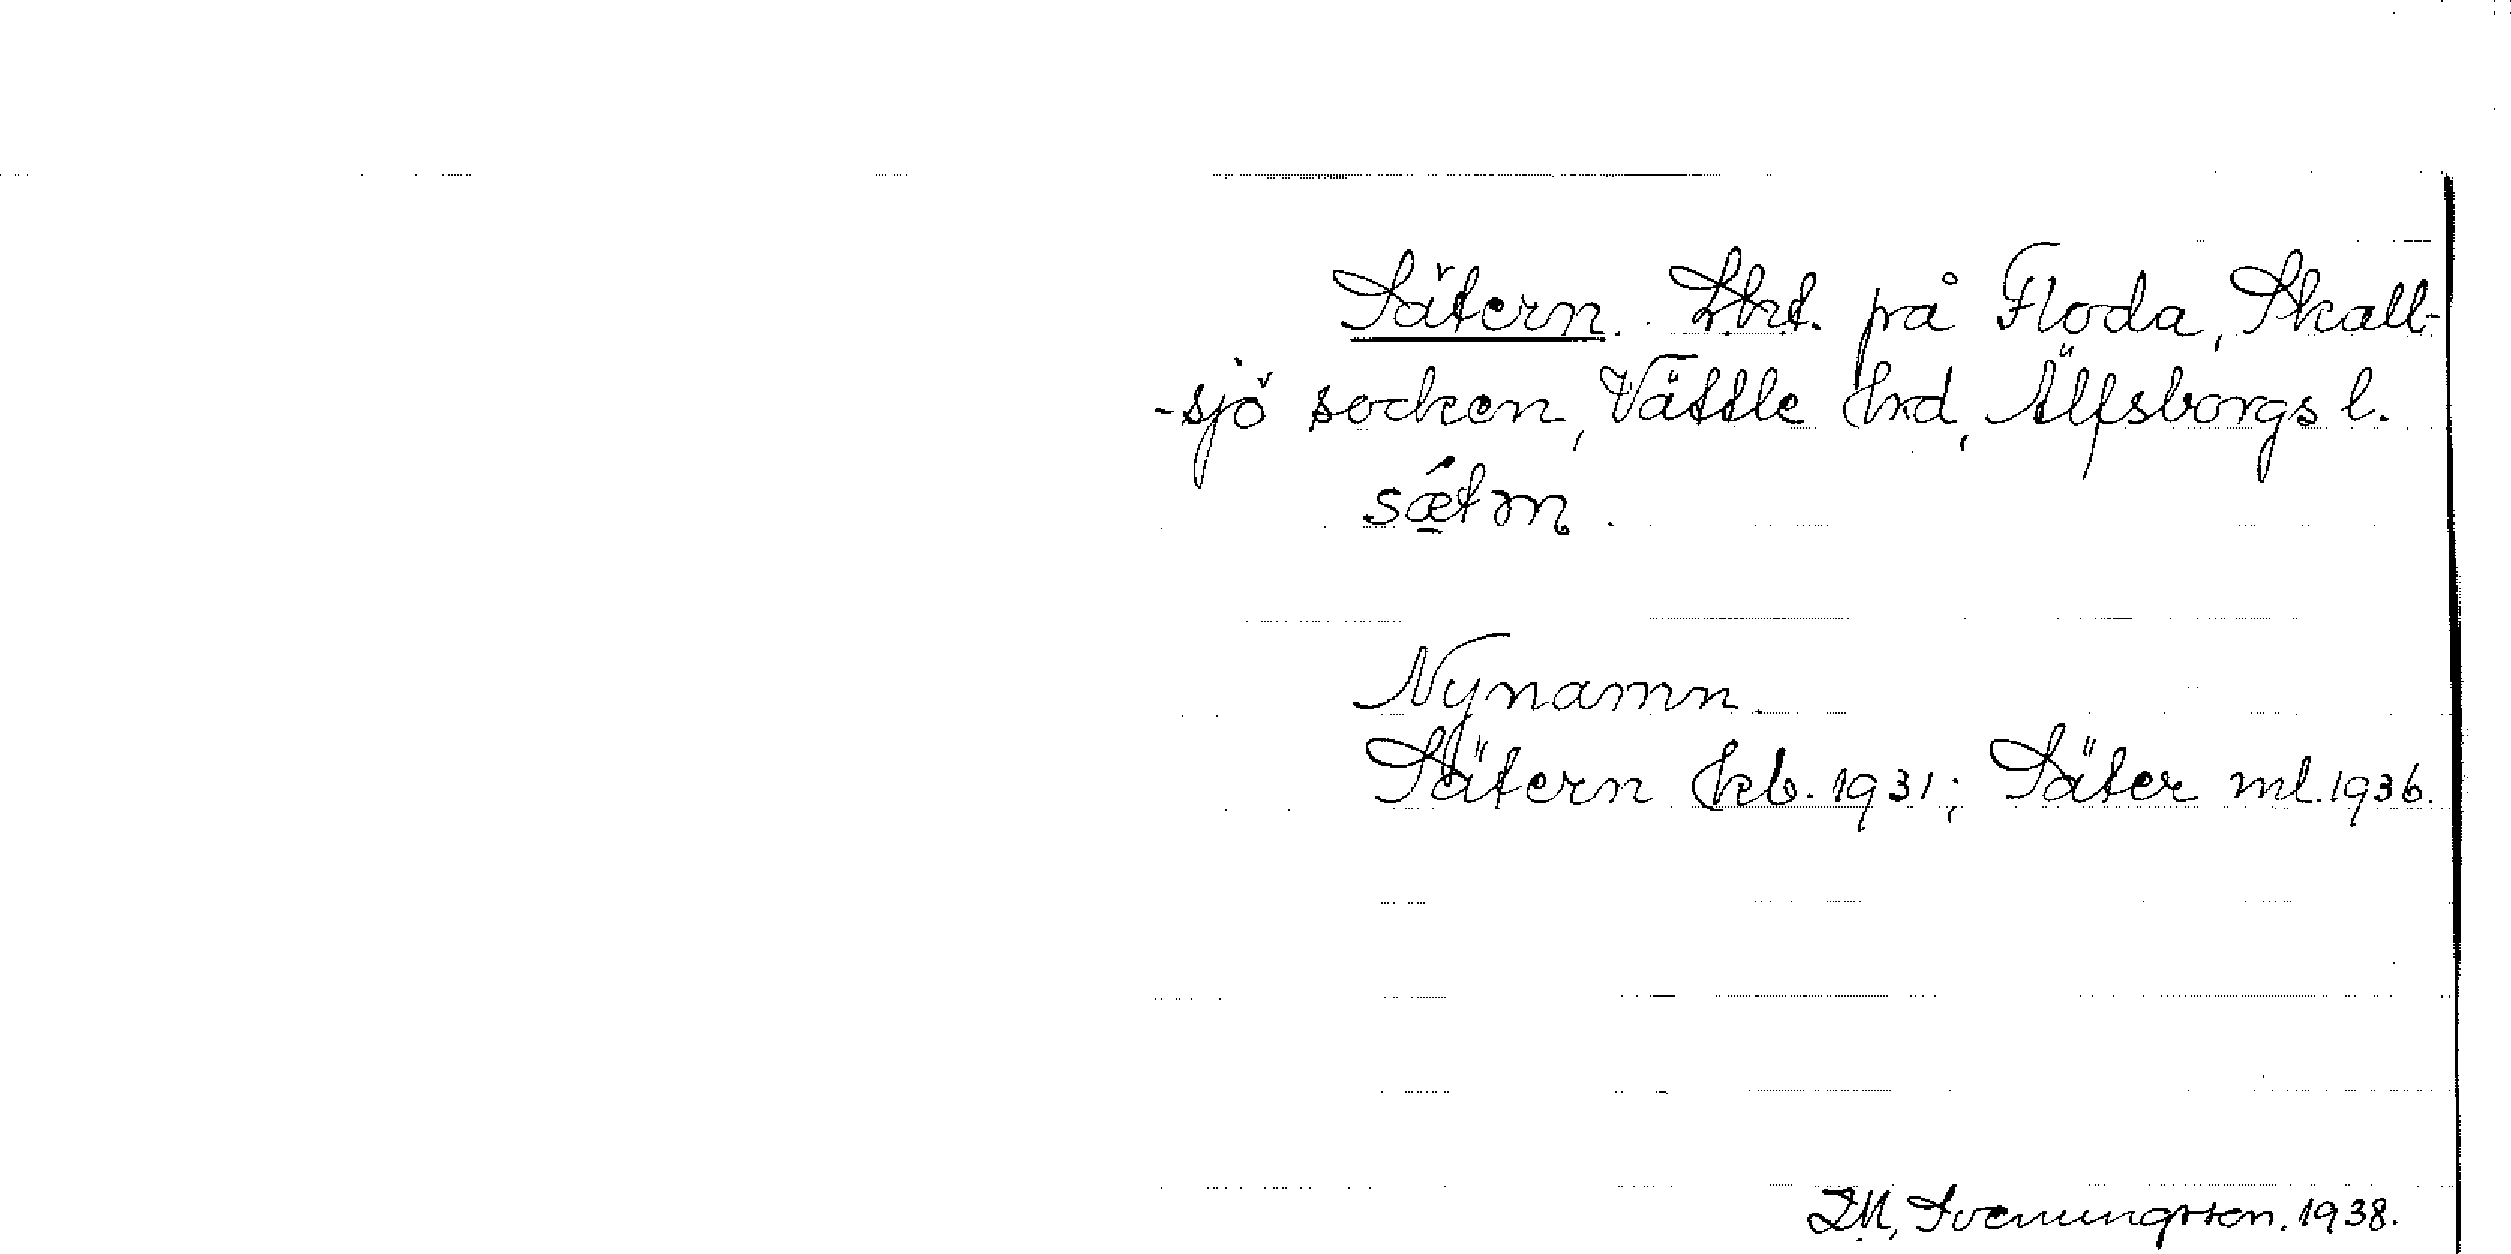 Sätern. Lht. på Floda, Skall-
-sjö socken, Vättle hrd, Älfsborgs l.
sǽtəɳ.
Nynamn
Sätern kb. 1931; Säter ml. 1936.
Svenungsson. 1938.